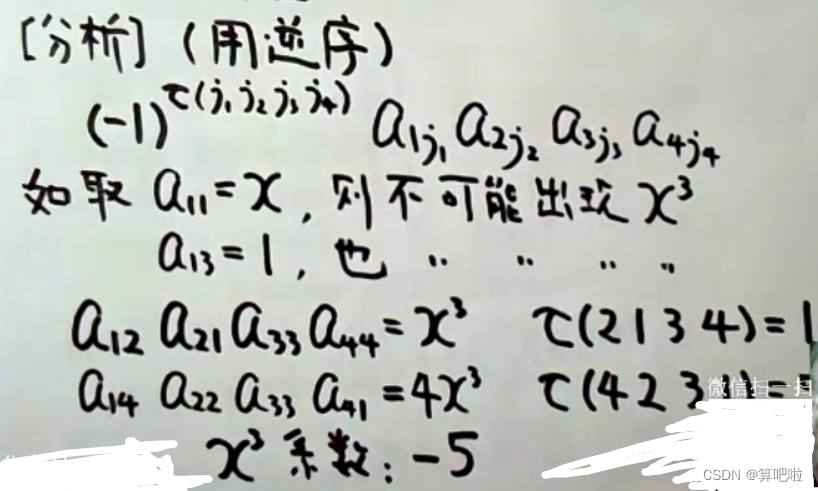 [分析] (用逆序)
(-1)^τ(j₁j₂j₃j₄) a₁j₁ a₂j₂ a₃j₃ a₄j₄
如取 a₁₁=x, 则不可能出现 x³
a₁₃=1, 也 〃 〃 〃 〃
a₁₂ a₂₁ a₃₃ a₄₄=x³ τ(2134)=1
a₁₄ a₂₂ a₃₃ a₄₁=4x³ τ(423
微信扫一扫
x³系数: -5
CSDN @算吧啦